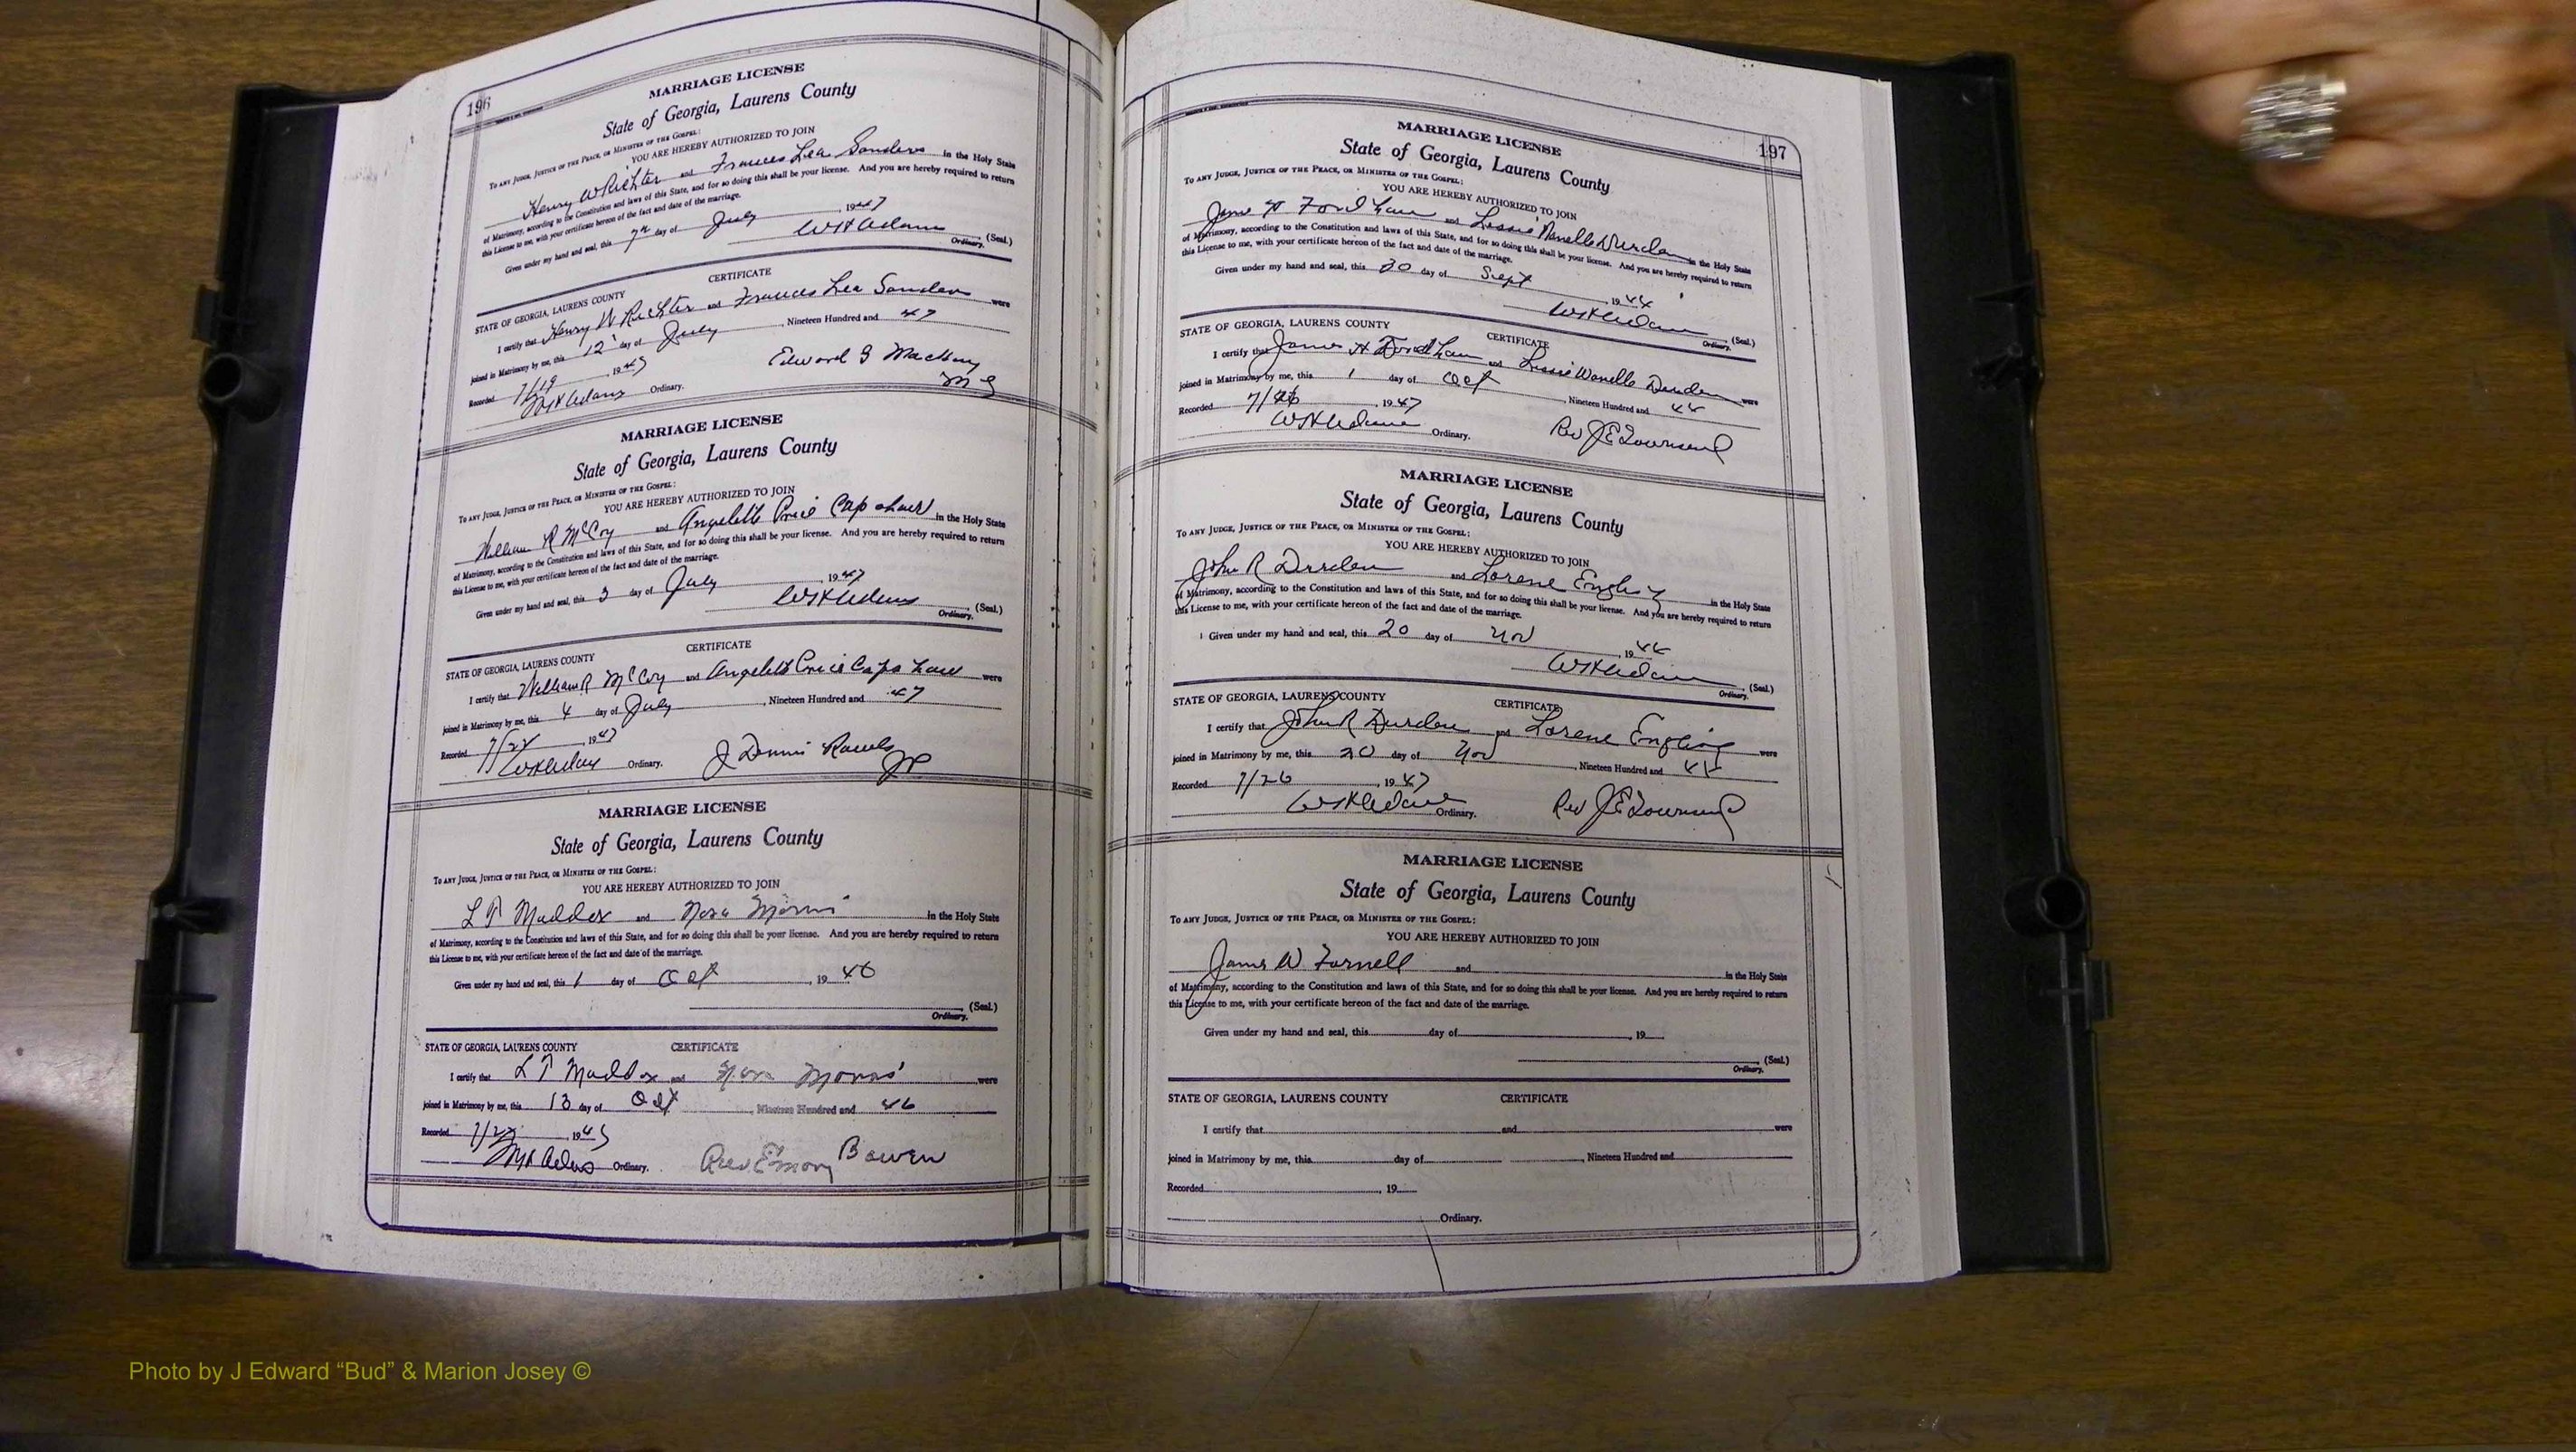 196
MARRIAGE LICENSE
State of Georgia, Laurens County
TO ANY JUDGE, JUSTICE OF THE PEACE, OR MINISTER OF THE GOSPEL:
YOU ARE HEREBY AUTHORIZED TO JOIN
Henry W Richter and Frances Lea Sanders in the Holy State
of Matrimony, according to the Constitution and laws of this State, and for so doing this shall be your license. And you are hereby required to return
this License to me, with your certificate hereon of the fact and date of the marriage.
Given under my hand and seal, this 7th day of July, 1947
WH Adams (Seal.)
Ordinary.
CERTIFICATE
STATE OF GEORGIA, LAURENS COUNTY
I certify that Henry W Richter and Frances Lea Sanders were
joined in Matrimony by me, this 12 day of July, Nineteen Hundred and 47
Recorded 7/19, 1947
Edward G
MG
WH Adams Ordinary.
MARRIAGE LICENSE
State of Georgia, Laurens County
TO ANY JUDGE, JUSTICE OF THE PEACE, OR MINISTER OF THE GOSPEL:
YOU ARE HEREBY AUTHORIZED TO JOIN
William R McCoy and Price in the Holy State
of Matrimony, according to the Constitution and laws of this State, and for so doing this shall be your license. And you are hereby required to return
this License to me, with your certificate hereon of the fact and date of the marriage.
Given under my hand and seal, this 3 day of July, 1947
WH Adams (Seal.)
Ordinary.
CERTIFICATE
STATE OF GEORGIA, LAURENS COUNTY
I certify that William R McCoy and Price were
joined in Matrimony by me, this 4 day of July, Nineteen Hundred and 47
Recorded, 1947
WH Adams Ordinary.
J Dennis
JP
MARRIAGE LICENSE
State of Georgia, Laurens County
TO ANY JUDGE, JUSTICE OF THE PEACE, OR MINISTER OF THE GOSPEL:
YOU ARE HEREBY AUTHORIZED TO JOIN
L T Maddox and Nora Morris in the Holy State
of Matrimony, according to the Constitution and laws of this State, and for so doing this shall be your license. And you are hereby required to return
this License to me, with your certificate hereon of the fact and date of the marriage.
Given under my hand and seal, this 1 day of Oct, 1946
(Seal.)
Ordinary.
STATE OF GEORGIA, LAURENS COUNTY CERTIFICATE
I certify that L T Maddox and Nora Morris were
joined in Matrimony by me, this 13 day of Oct, Nineteen Hundred and 46
Recorded, 19
Ordinary. Rev Emory Bowen
197
MARRIAGE LICENSE
State of Georgia, Laurens County
TO ANY JUDGE, JUSTICE OF THE PEACE, OR MINISTER OF THE GOSPEL:
YOU ARE HEREBY AUTHORIZED TO JOIN
James H Fordham and Lessie Durden in the Holy State
of Matrimony, according to the Constitution and laws of this State, and for so doing this shall be your license. And you are hereby required to return
this License to me, with your certificate hereon of the fact and date of the marriage.
Given under my hand and seal, this 30 day of Sept, 1944
WH Adams (Seal.)
Ordinary.
STATE OF GEORGIA, LAURENS COUNTY CERTIFICATE
I certify that James H Fordham and Lessie Wanelle Durden were
joined in Matrimony by me, this 1 day of Oct, Nineteen Hundred and 44
Recorded 7/26, 1947
WH Adams Ordinary.
Rev J E Townsend
MARRIAGE LICENSE
State of Georgia, Laurens County
TO ANY JUDGE, JUSTICE OF THE PEACE, OR MINISTER OF THE GOSPEL:
YOU ARE HEREBY AUTHORIZED TO JOIN
John R Durden and Lorene in the Holy State
of Matrimony, according to the Constitution and laws of this State, and for so doing this shall be your license. And you are hereby required to return
this License to me, with your certificate hereon of the fact and date of the marriage.
Given under my hand and seal, this 20 day of Nov, 1944
WH Adams (Seal.)
Ordinary.
STATE OF GEORGIA, LAURENS COUNTY CERTIFICATE
I certify that John R Durden and Lorene were
joined in Matrimony by me, this 20 day of Nov, Nineteen Hundred and 44
Recorded 7/26, 1947
WH Adams Ordinary.
Rev J E Townsend
MARRIAGE LICENSE
State of Georgia, Laurens County
TO ANY JUDGE, JUSTICE OF THE PEACE, OR MINISTER OF THE GOSPEL:
YOU ARE HEREBY AUTHORIZED TO JOIN
James W Fornell and in the Holy State
of Matrimony, according to the Constitution and laws of this State, and for so doing this shall be your license. And you are hereby required to return
this License to me, with your certificate hereon of the fact and date of the marriage.
Given under my hand and seal, this day of, 19
(Seal.)
Ordinary.
STATE OF GEORGIA, LAURENS COUNTY CERTIFICATE
I certify that and were
joined in Matrimony by me, this day of, Nineteen Hundred and
Recorded, 19
Ordinary.
Photo by J Edward “Bud” & Marion Josey ©